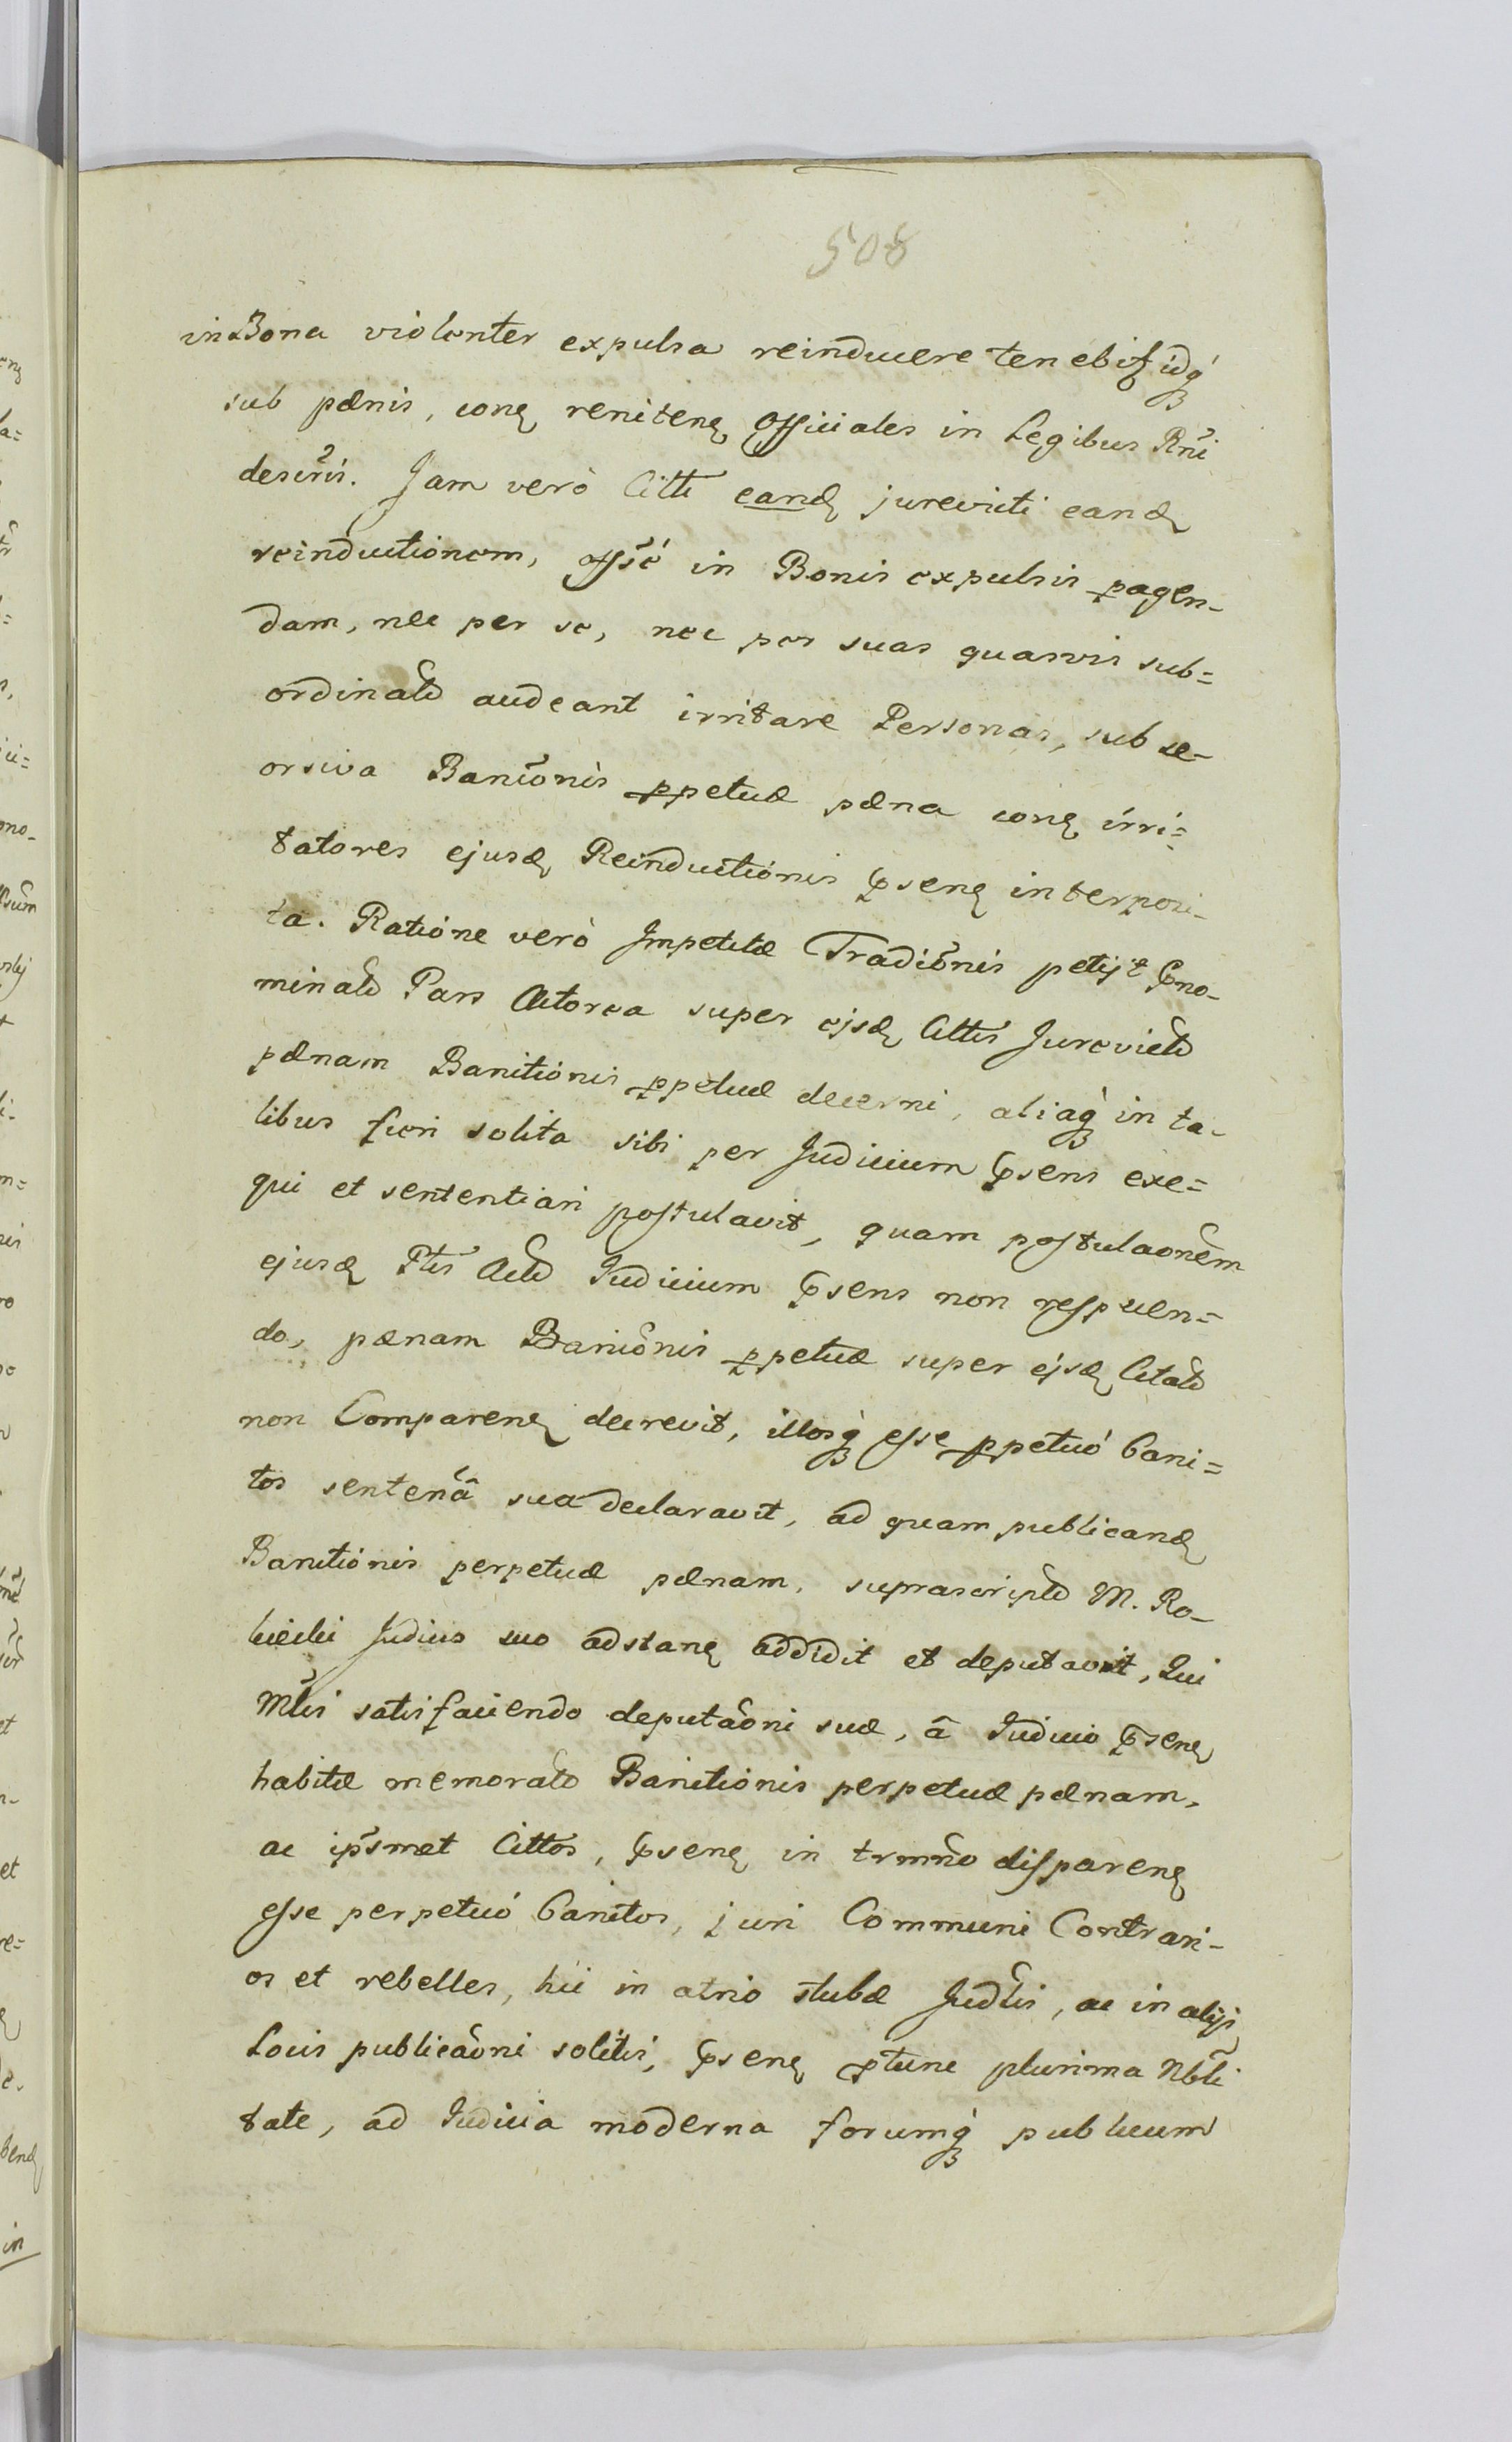 508
in Bona violenter expulsa reinducere tenebit₹ idq́ꝫ
sub pænis, conꝫ renitenꝫ Officiales in Legibus Rñi
descr̃is. Jam verò Citti eandꝫ jurevicti eandꝫ
reinductionem, offsẽ in Bonis expulsis ꝑagen-
dam, nec per se, nec per suas quasvis sub=
ordinatas audeant irritare Personas, sub se-
orsiva Banĩonis ꝑpetuæ pæna conꝫ irri=
tatores ejusdꝫ Reinductionis p̃senꝫ interposi-
ta. Ratione verò Impetitæ Tradĩonis petijt p̃no-
minata Pars Actorea super eisdꝫ Cittis Jurevictis
pænam Banitionis ꝑpetuæ decerni, aliaq́ꝫ in ta-
libus fieri solita sibi per Judicium p̃sens exe=
qui et sententiari postulavit, quam postulaõnem
ejusdꝫ Ptis Actæ Judicium p̃sens non respuen=
do, pænam Banĩonis ꝑpetuæ super eisdꝫ Citatis
non Comparenꝫ decrevit, illosq́ꝫ esse ꝑpetuó bani=
tos sentenã sua declaravit, ad quam publicandꝫ
Banitionis perpetuæ pænam, suprascriptus M. Ro-
hicki Judicio suo adstanꝫ addidit et deputavit, Qui
Mlis satisfaciendo deputaõni suæ, â Judicio p̃senꝫ
habitæ memoratæ Banitionis perpetuæ pænam,
ac ip̃smet Cittos, p̃senꝫ in trmño disparenꝫ
esse perpetuó banitos, juri Communi Contrari-
os et rebelles, hic in atrio stubæ Judlis, ac in alijs
Locis publicaõni solitis, p̃senꝫ p̃tunc plurima Nbli
tate, ad Judicia moderna forumq́ꝫ publicum